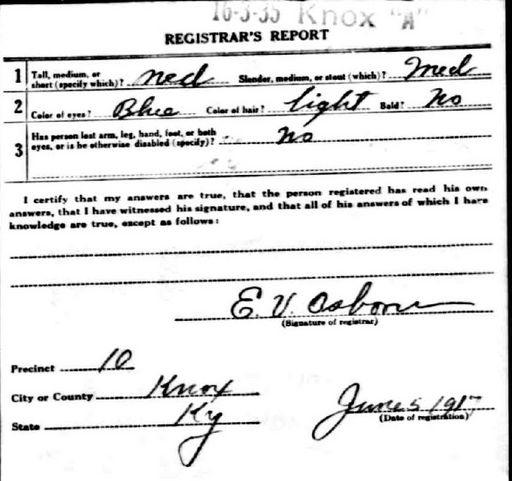 16-3-35 Knox "A"
REGISTRAR'S REPORT
1 Tall, medium, or short (specify which)? Med Slender, medium, or stout (which)? Med
2 Color of eyes? Blue Color of hair? Light Bald? No
3 Has person lost arm, leg, hand, foot, or both eyes, or is he otherwise disabled (specify)? No
I certify that my answers are true, that the person registered has read his own
answers, that I have witnessed his signature, and that all of his answers of which I have
knowledge are true, except as follows:
E. V. Osborne
(Signature of registrar)
Precinct 10
City or County Knox
State Ky
June 5 1917
(Date of registration)